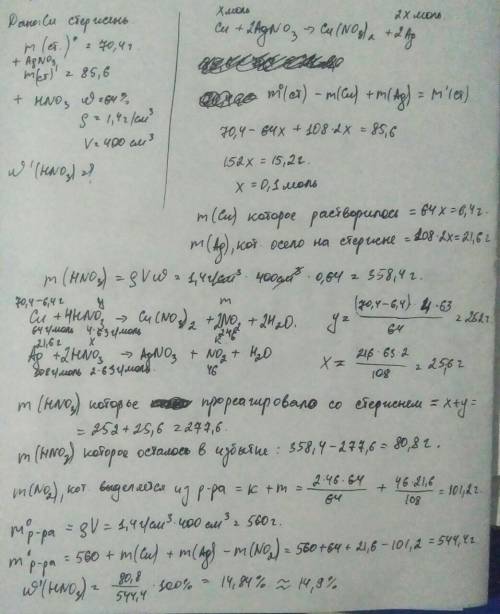 Дано: Cu стержень
m(ст.)⁰ = 70,4г.
+ AgNO₃
m(ст)' = 85,6
+ HNO₃ ω=64%
ρ = 1,4г/см³
V = 400 см³
ω'(HNO₃) = ?
x моль 2x моль
Cu + 2AgNO₃ → Cu(NO₃)₂ + 2Ag
m⁰(ст) - m(Cu) + m(Ag) = m'(ст)
70,4 - 64x + 108·2x = 85,6
152x = 15,2г.
x = 0,1 моль
m(Cu) которое растворилось = 64x = 6,4г.
m(Ag), кот. осело на стержне = 108·2x = 21,6г
m(HNO₃) = ρVω = 1,4г/см³ · 400см³ · 0,64 = 358,4г.
70,4-6,4г y m
Cu + 4HNO₃ → Cu(NO₃)₂ + 2NO₂ + 2H₂O.
64г/моль 4·63г/моль 2·46
y = (70,4-6,4)·4·63 / 64 = 252г
21,6г x к
Ag + 2HNO₃ → AgNO₃ + NO₂ + H₂O
108г/моль 2·63г/моль 46
x = 216·63·2 / 108 = 25,6г
m(HNO₃) которые прореагировало со стержнем = x+y =
= 252 + 25,6 = 277,6.
m(HNO₃) которое осталось в избытке: 358,4 - 277,6 = 80,8г.
m(NO₂), кот. выделяется из р-ра = к + m = 2·46·64 / 64 + 46·21,6 / 108 = 101,2г.
m⁰р-ра = ρV = 1,4г/см³ · 400 см³ = 560г.
m'р-ра = 560 + m(Cu) + m(Ag) - m(NO₂) = 560+64+21,6-101,2 = 544,4г.
ω'(HNO₃) = 80,8 / 544,4 · 100% = 14,84% ≈ 14,9%